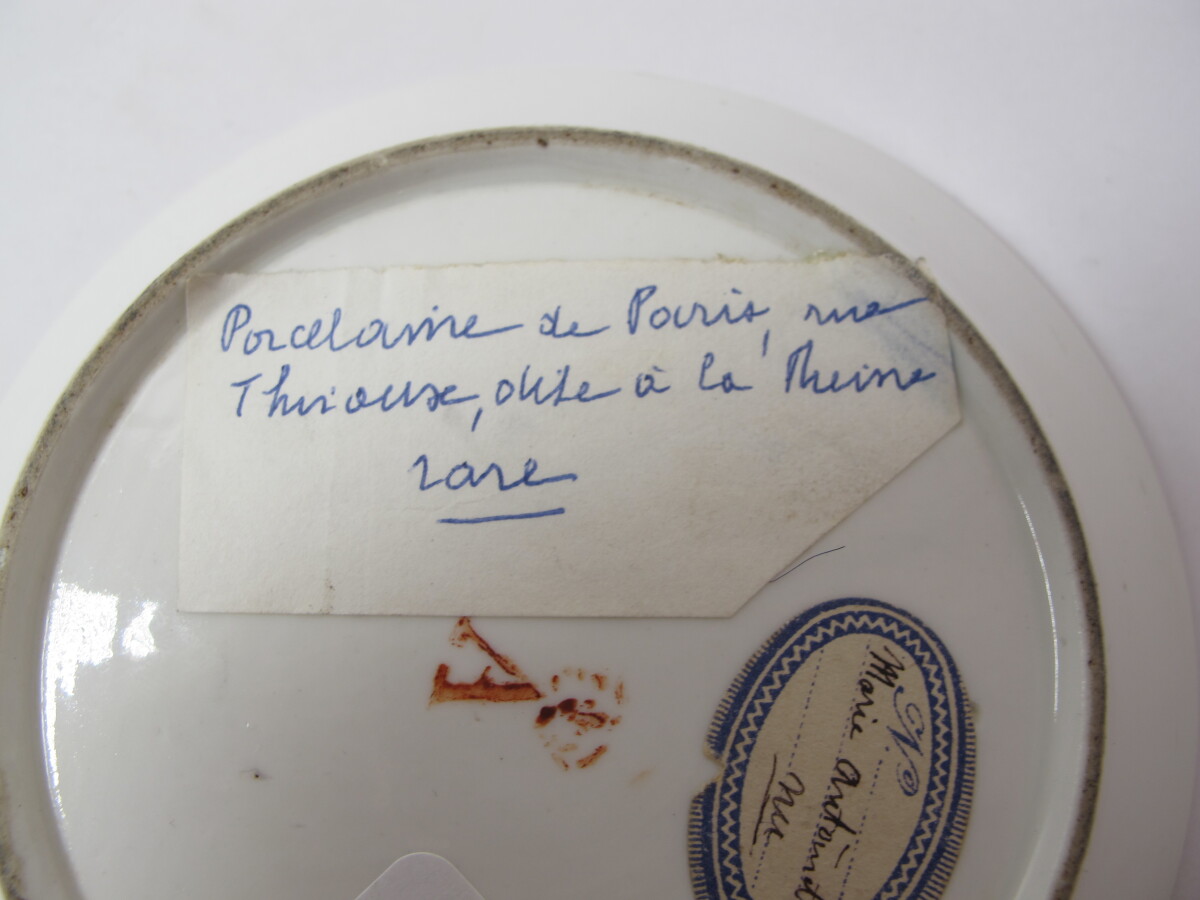 Porcelaine de Paris, rue
Thiroux, dite à la Reine
rare
No
Marie Antoinet
A